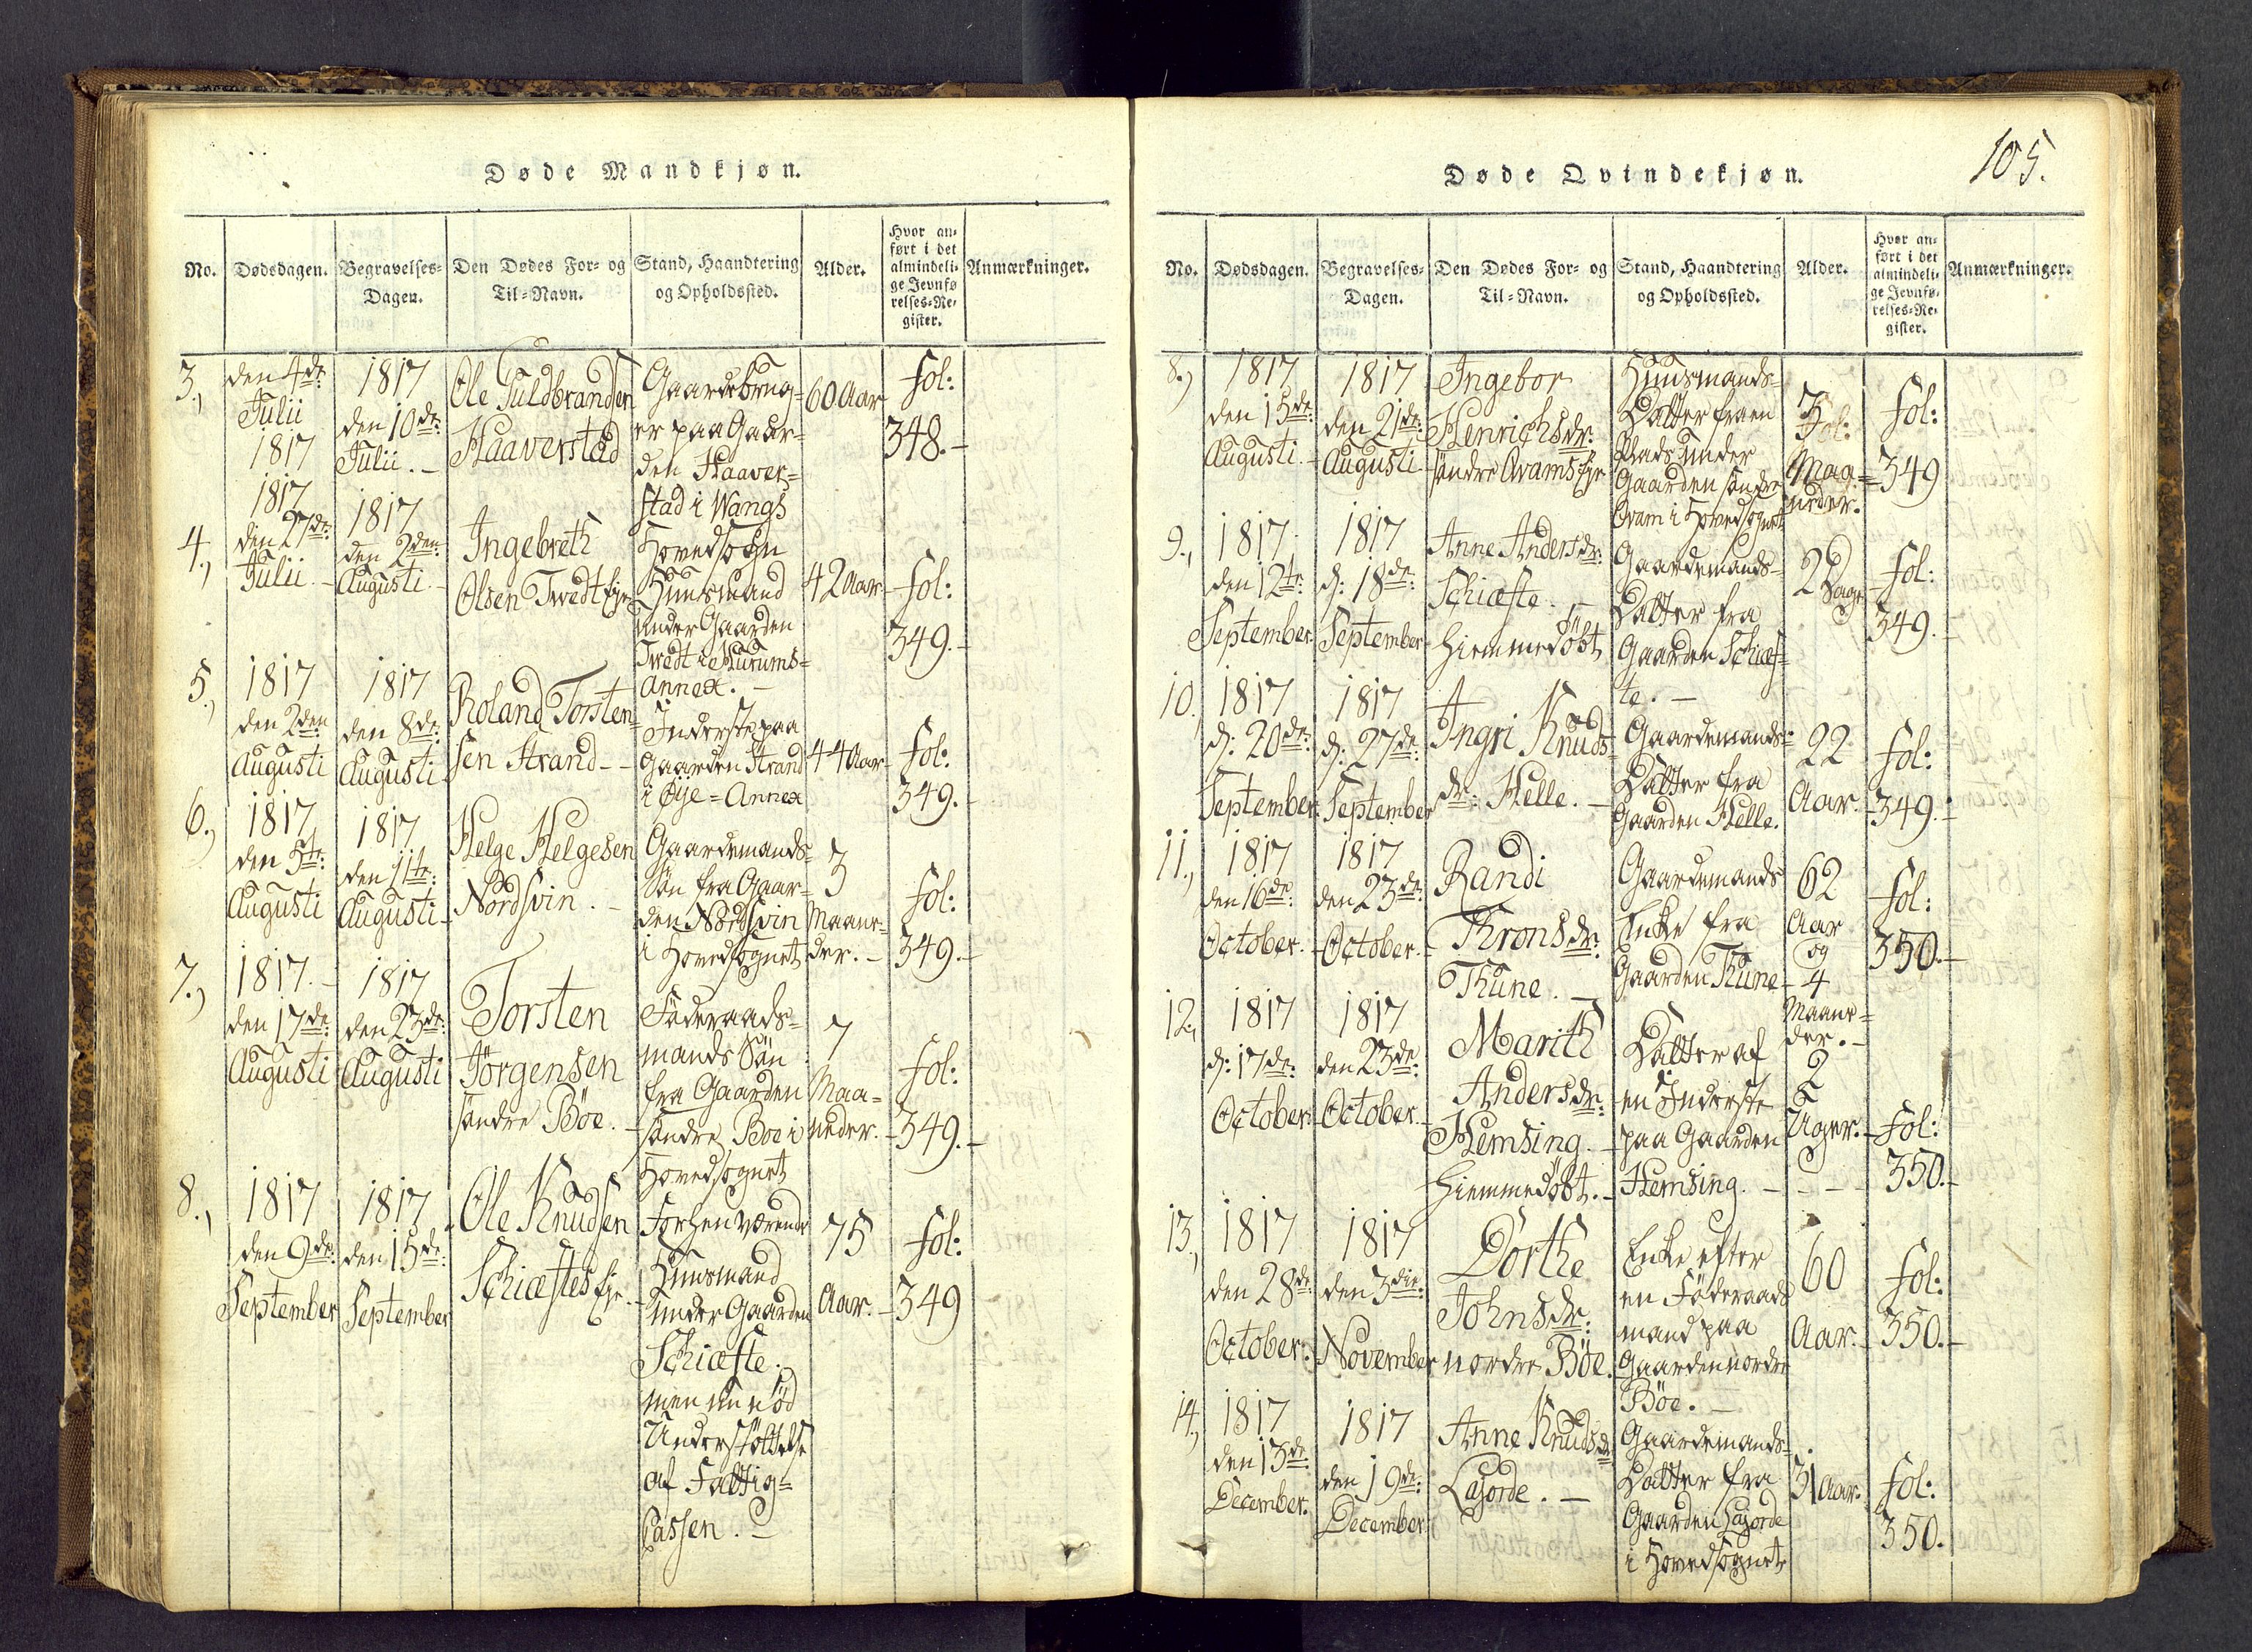 Døde Mandkjøn.
No.
Dødsdagen.
Begravelses-
Dagen.
Den Dødes For- og
Til-Navn.
Stand, Haandtering
og Opholdssted.
Alder.
Hvor an-
ført i det
almindeli-
ge Jevnfø
relses-Re-
gister.
Anmærkninger.
3.,
den 4de
Julii
1817
1817
den 10de:
Julii. -
Ole Guldbrandsen
Haaverstad
Gaardebrug-
er paa Gaar-
den Haaver-
stad i Wangs
Hovedsogn
60 Aar
fol:
348. -
4.,
1817
den 27de:
Julii. -
1817
den 2den:
Augusti -
Ingebreth
Olsen Twedt Eje
Huusmand
under Gaarden
Twedt i Hurums-
Annex. -
42 Aar
fol:
349. -
5.,
1817
den 2den
Augusti
1817
den 8de:
Augusti
Roland Torsten-
sen Strand - -
Inderste paa
Gaarden Strand
i Øye-Annex
44 Aar
fol:
349. -
6.,
1817
den 5te:
Augusti
1817
den 11te:
Augusti -
Helge Helgesen
Nordsvin. -
Gaardemands-
Søn fra Gaar-
den Nordsvin
i Hovedsognet
3
Maane-
der. -
fol:
349. -
7.,
1817. -
den 17de:
Augusti
1817
den 23de:
Augusti
Torsten
Jörgensen
søndre Böe. -
Föderaads-
mands Søn
fra Gaarden
søndre Böe i
Hovedsognet
7
Maa-
neder. -
fol:
349. -
8.,
1817
den 9de:
September
1817
den 15de:
September
Ole Knudsen
Schiæstes Eje. -
Forhen værende
Huusmand
under Gaarden
Schiæste.
men nu nød
Understöttelse
af Fattig-
Cassen. -
75
Aar. -
fol:
349
105.
Døde Qvindekjøn.
No.
Dødsdagen.
Begravelses-
Dagen.
Den Dødes For- og
Til-Navn.
Stand, Haandtering
og Opholdssted.
Alder.
Hvor an-
ført i det
almindeli-
ge Jevnfø-
relses-Re-
gister.
Anmærkninger.
8.,
1817
den 15de:
Augusti. -
1817
den 21de:
Augusti -
Ingebor
Henrichsdr:
søndre Qvams Eje
Huusmands-
Datter fra en
Plads under
Gaarden søndre
Qvam i Hovedsognet
3
Maa-
neder.
fol:
349
9.,
1817.
den 12te:
September
1817
d: 18de:
September
Anne Andersdr:
Schiæste. -
hiemmedöbt
Gaardemands-
Datter fra
Gaarden Schiæs-
te. -
2
Dage
fol:
349. -
10.,
1817
d: 20de:
September
1817
d: 27de:
September
Ingri Knuds-
dr: Helle. -
Gaardemands-
Datter fra
Gaarden Helle.
22
Aar. -
fol:
349. -
11.,
1817
den 16de:
October. -
1817
den 23de:
October. -
Randi
Thronsdr:
Thune. -
Gaardemands
Enke fra
Gaarden Thune -
62
Aar
og
4
Maane-
der. -
fol:
350. -
12.,
1817
d: 17de:
October.
1817
den 23de
October. -
Marith
Andersdr:
Hemsing. -
hiemmedöbt. -
Datter af
en Inderste
paa Gaarden
Hemsing. - - - -
2
Uger. -
fol:
350. -
13.,
1817
den 28de
October.
1817
den 3die:
November
Dorthe
Johnsdr:
nordre Böe.
Enke efter
en Föderaads
mand paa
Gaarden nordre
Böe. -
60
Aar. -
fol:
350. -
14.,
1817
den 13de
December.
1817
den 19de:
December
Anne Knudsdr
Lajorde. -
Gaardemands-
Datter fra
Gaarden Lajorde
i Hovedsognet
31 Aar.
fol:
350.